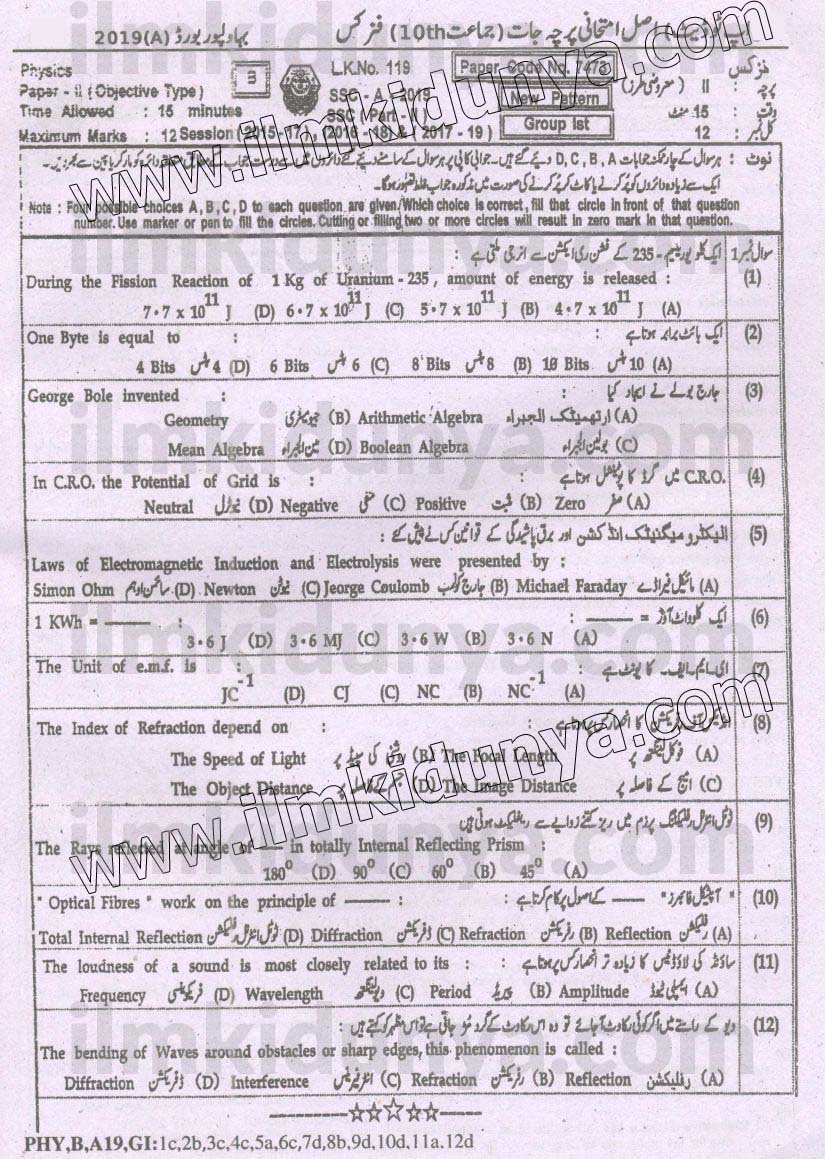 اپ ٹو ڈیٹ اصل امتحانی پرچہ جات (جماعت 10th) فزکس بہاولپور بورڈ 2019(A)
Physics B L.K.No. 119 Paper Code No. 7473 فزکس
Paper - II (Objective Type) SSC - A - 2019 New Pattern پرچہ : II (معروضی طرز)
Time Allowed : 15 minutes SSC (Part - II) Group Ist وقت : 15 منٹ
Maximum Marks : 12 Session (2015 - 17), (2016 - 18) & (2017 - 19) کل نمبر : 12
نوٹ : ہر سوال کے چار ممکنہ جوابات D, C, B, A دیئے گئے ہیں۔ جوابی کاپی پر ہر سوال کے سامنے دیئے گئے دائروں میں سے درست جواب کے مطابق متعلقہ دائرہ کو مارکر یا پین سے بھر دیں۔
ایک سے زیادہ دائروں کو پُر کرنے یا کاٹ کر پُر کرنے کی صورت میں مذکورہ جواب غلط تصور ہوگا۔
Note : Four possible choices A, B, C, D to each question are given. Which choice is correct, fill that circle in front of that question
number. Use marker or pen to fill the circles. Cutting or filling two or more circles will result in zero mark in that question.
سوال نمبر 1 ایک کلو یورینیم - 235 کے فشن ری ایکشن سے انرجی ملتی ہے :
During the Fission Reaction of 1 Kg of Uranium - 235 , amount of energy is released : (1)
7·7 x 10¹¹ J (D) 6·7 x 10¹¹ J (C) 5·7 x 10¹¹ J (B) 4·7 x 10¹¹ J (A)
One Byte is equal to : ایک بائٹ برابر ہوتا ہے : (2)
4 Bits 4 بٹس (D) 6 Bits 6 بٹس (C) 8 Bits 8 بٹس (B) 10 Bits 10 بٹس (A)
George Bole invented : جارج بولے نے ایجاد کیا : (3)
Geometry جیومیٹری (B) Arithmetic Algebra ارتھمیٹک الجبراء (A)
Mean Algebra مین الجبراء (D) Boolean Algebra بولین الجبراء (C)
In C.R.O. the Potential of Grid is : C.R.O. میں گرڈ کا پوٹینشل ہوتا ہے : (4)
Neutral نیوٹرل (D) Negative منفی (C) Positive مثبت (B) Zero صفر (A)
الیکٹرومیگنیٹک انڈکشن اور برق پاشیدگی کے قوانین کس نے پیش کئے : (5)
Laws of Electromagnetic Induction and Electrolysis were presented by :
Simon Ohm سائمن اوہم (D) Newton نیوٹن (C) Jeorge Coulomb جارج کولمب (B) Michael Faraday مائیکل فیراڈے (A)
1 KWh = ——— : ایک کلوواٹ آور = ——— : (6)
3·6 J (D) 3·6 MJ (C) 3·6 W (B) 3·6 N (A)
The Unit of e.m.f. is : ای۔ایم۔ایف۔ کا یونٹ ہے : (7)
JC⁻¹ (D) CJ (C) NC (B) NC⁻¹ (A)
The Index of Refraction depend on : انڈیکس آف ریفریکشن کا انحصار کس پر ہوتا ہے : (8)
The Speed of Light روشنی کی سپیڈ پر (B) The Focal Length فوکل لینگتھ پر (A)
The Object Distance جسم کے فاصلہ پر (D) The Image Distance امیج کے فاصلہ پر (C)
ٹوٹل انٹرنل ریفلیکٹنگ پرزم میں ریز کتنے زاویے سے ریفلیکٹ ہوتی ہیں (9)
The Rays reflected at angle of —— in totally Internal Reflecting Prism :
180⁰ (D) 90⁰ (C) 60⁰ (B) 45⁰ (A)
" Optical Fibres " work on the principle of ——— : " آپٹیکل فائبرز " ——— کے اصول پر کام کرتا ہے : (10)
Total Internal Reflection ٹوٹل انٹرنل ریفلیکشن (D) Diffraction ڈفریکشن (C) Refraction ریفریکشن (B) Reflection ریفلیکشن (A)
The loudness of a sound is most closely related to its : ساؤنڈ کی لاؤڈنیس کا زیادہ تر انحصار کس پر ہوتا ہے : (11)
Frequency فریکوئنسی (D) Wavelength ویولینگتھ (C) Period پیریڈ (B) Amplitude ایمپلی ٹیوڈ (A)
ویو کے راستے میں اگر کوئی رکاوٹ آ جائے تو وہ اس رکاوٹ کے گرد مُڑ جاتی ہے تو اس مظہر کو کہتے ہیں : (12)
The bending of Waves around obstacles or sharp edges, this phenomenon is called :
Diffraction ڈفریکشن (D) Interference انٹرفیرنس (C) Refraction ریفریکشن (B) Reflection ریفلیکشن (A)
PHY,B,A19,GI:1c,2b,3c,4c,5a,6c,7d,8b,9d,10d,11a.12d
www.ilmkidunya.com
www.ilmkidunya.com
ilmkidunya.com
ilmkidunya.com
ilmkidunya.com
ilmkidunya.com
ilmkidunya.com